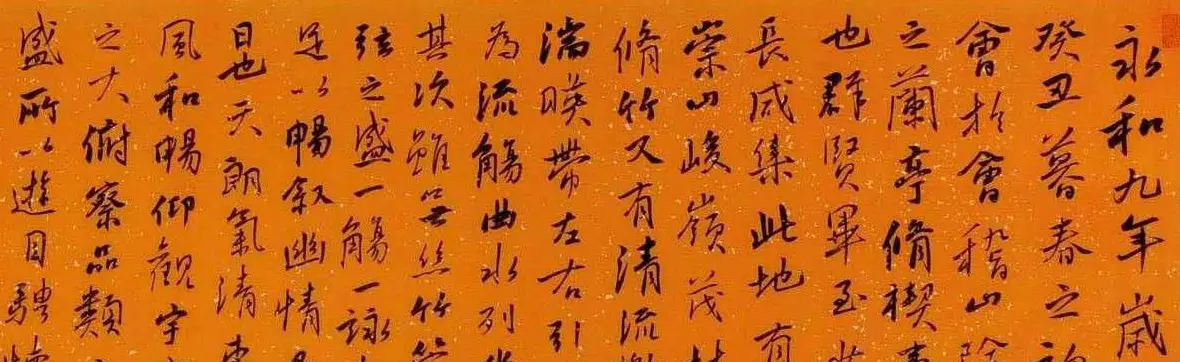 永和九年歲
癸丑暮春之初
會於會稽山陰
之蘭亭脩禊事
也群賢畢至
長咸集此地有
崇山峻嶺茂林
脩竹又有清流激
湍暎帶左右引
為流觴曲水列坐
其次雖無絲竹管
弦之盛一觴一詠
足以暢敘幽情
日也天朗氣清惠
風和暢仰觀宇
之大俯察品類
盛所以遊目騁懷